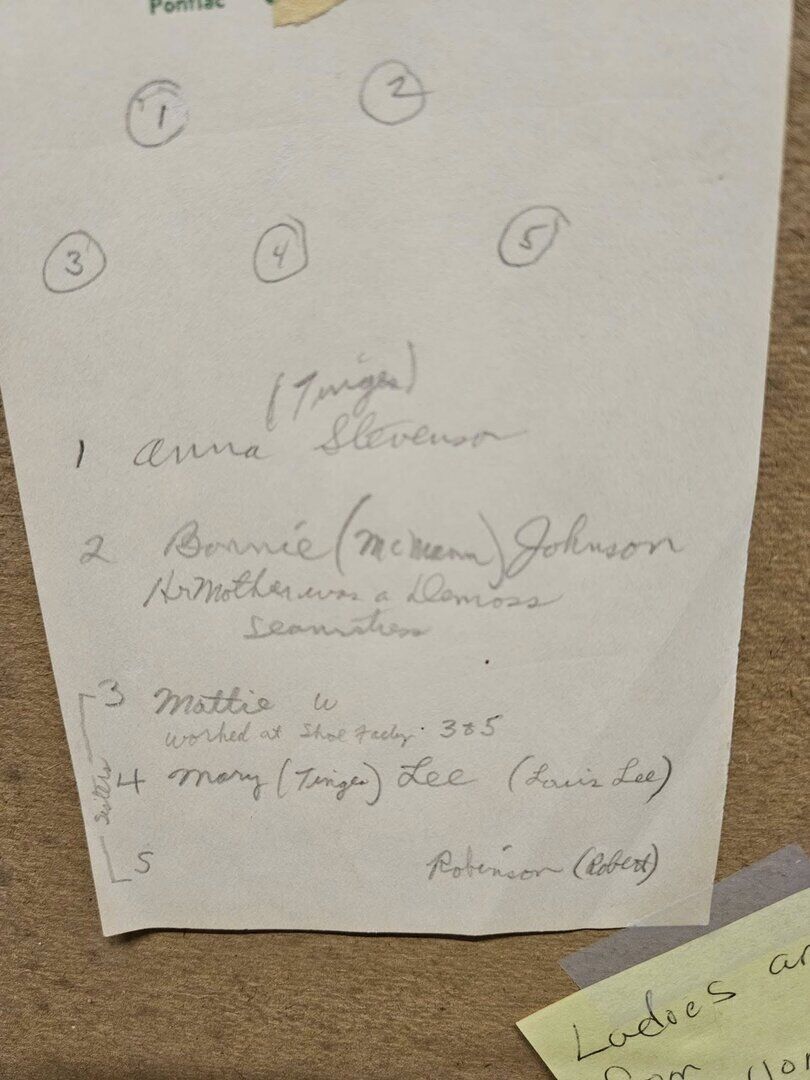 Pontiac
1 2
3 4 5
(Tinges)
1 Anna Stevenson
2 Bonnie (McMann) Johnson
Her Mother was a Demoss
Seamstress
3 Mattie W
worked at Shoe Factry. 3&5
Sisters
4 Mary (Tinges) Lee (Louis Lee)
5 Robinson (Robert)
Ladies